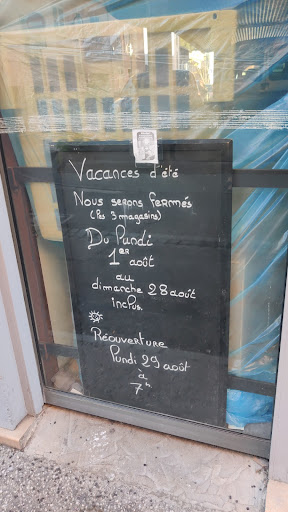 Vacances d'été
Nous serons fermés
(les 3 magasins)
Du lundi
1er août
au
dimanche 28 août
inclus.
Réouverture
lundi 29 août
à
7h